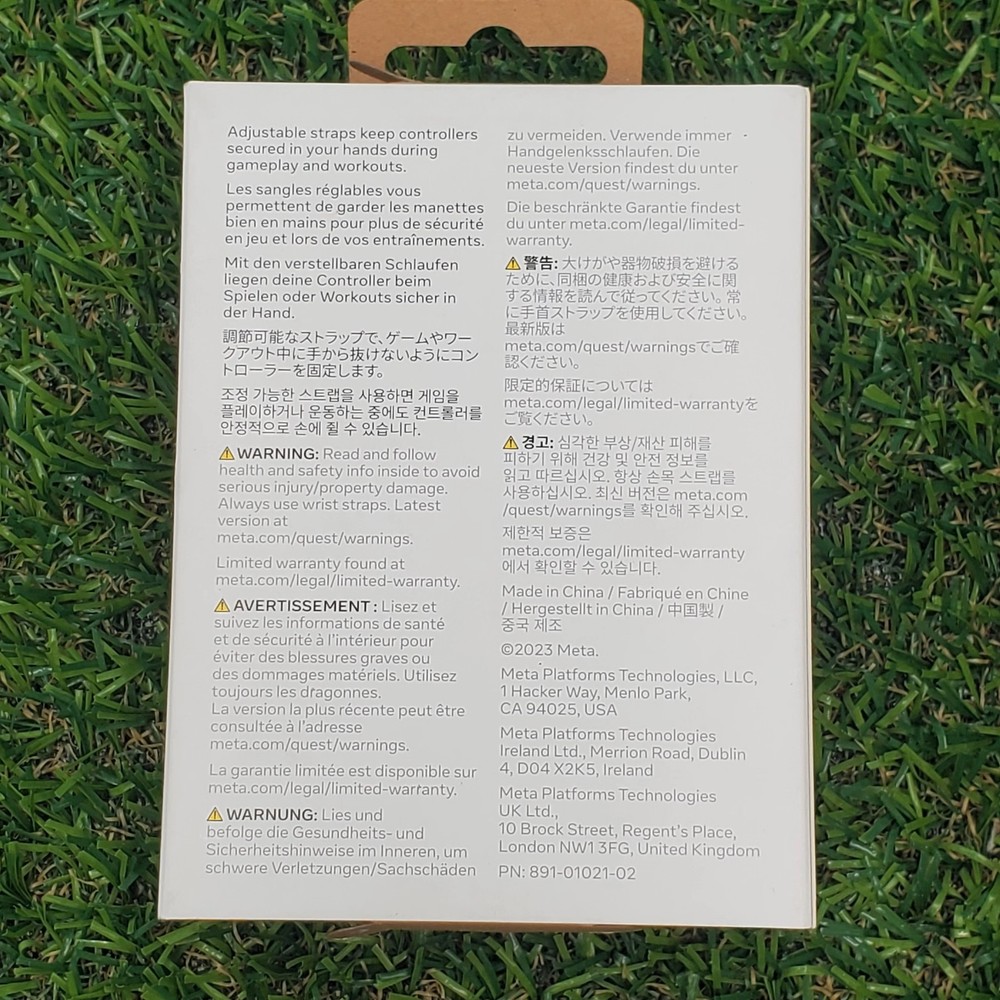 Adjustable straps keep controllers
secured in your hands during
gameplay and workouts.
Les sangles réglables vous
permettent de garder les manettes
bien en mains pour plus de sécurité
en jeu et lors de vos entraînements.
Mit den verstellbaren Schlaufen
liegen deine Controller beim
Spielen oder Workouts sicher in
der Hand.
調節可能なストラップで、ゲームやワー
クアウト中に手から抜けないようにコン
トローラーを固定します。
조정 가능한 스트랩을 사용하면 게임을
플레이하거나 운동하는 중에도 컨트롤러를
안정적으로 손에 쥘 수 있습니다.
⚠WARNING: Read and follow
health and safety info inside to avoid
serious injury/property damage.
Always use wrist straps. Latest
version at
meta.com/quest/warnings.
Limited warranty found at
meta.com/legal/limited-warranty.
⚠AVERTISSEMENT : Lisez et
suivez les informations de santé
et de sécurité à l'intérieur pour
éviter des blessures graves ou
des dommages matériels. Utilisez
toujours les dragonnes.
La version la plus récente peut être
consultée à l'adresse
meta.com/quest/warnings.
La garantie limitée est disponible sur
meta.com/legal/limited-warranty.
⚠WARNUNG: Lies und
befolge die Gesundheits- und
Sicherheitshinweise im Inneren, um
schwere Verletzungen/Sachschäden
zu vermeiden. Verwende immer
Handgelenksschlaufen. Die
neueste Version findest du unter
meta.com/quest/warnings.
Die beschränkte Garantie findest
du unter meta.com/legal/limited-
warranty.
⚠警告: 大けがや器物破損を避ける
ために、同梱の健康および安全に関
する情報を読んで従ってください。常
に手首ストラップを使用してください。
最新版は
meta.com/quest/warningsでご確
認ください。
限定的保証については
meta.com/legal/limited-warrantyを
ご覧ください。
⚠경고: 심각한 부상/재산 피해를
피하기 위해 건강 및 안전 정보를
읽고 따르십시오. 항상 손목 스트랩을
사용하십시오. 최신 버전은 meta.com
/quest/warnings를 확인해 주십시오.
제한적 보증은
meta.com/legal/limited-warranty
에서 확인할 수 있습니다.
Made in China / Fabriqué en Chine
/ Hergestellt in China / 中国製 /
중국 제조
©2023 Meta.
Meta Platforms Technologies, LLC,
1 Hacker Way, Menlo Park,
CA 94025, USA
Meta Platforms Technologies
Ireland Ltd., Merrion Road, Dublin
4, D04 X2K5, Ireland
Meta Platforms Technologies
UK Ltd.,
10 Brock Street, Regent's Place,
London NW1 3FG, United Kingdom
PN: 891-01021-02